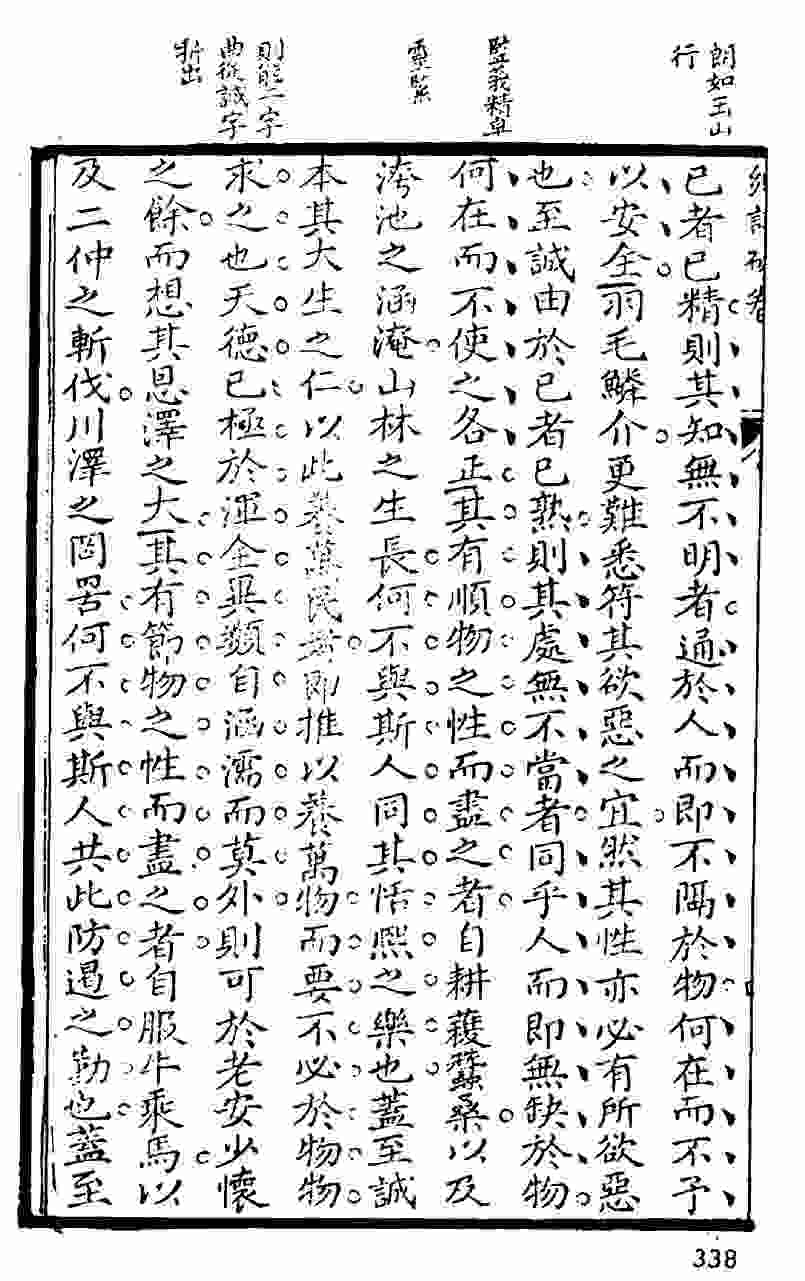 朗如玉山
行
監義精卓
靈緊
則能二字
曲從誠字
斯出
已者已精則其知無不明者通於人而即不隔於物何在而不予
以安全羽毛鱗介更難悉符其欲惡之宜然其性亦必有所欲惡
也至誠由於已者已熟則其處無不當者同乎人而即無缺於物
何在而不使之各正其有順物之性而盡之者自耕穫蠶桑以及
洿池之涵淹山林之生長何不與斯人同其恬熙之樂也蓋至誠
本其大生之仁以此養萬民者即推以養萬物而要不必於物物
求之也天德已極於渾全異類自涵濡而莫外則可於老安少懷
之餘而想其恩澤之大其有節物之性而盡之者自服牛乘馬以
及二仲之斬伐川澤之罔罟何不與斯人共此防遏之勤也蓋至
338